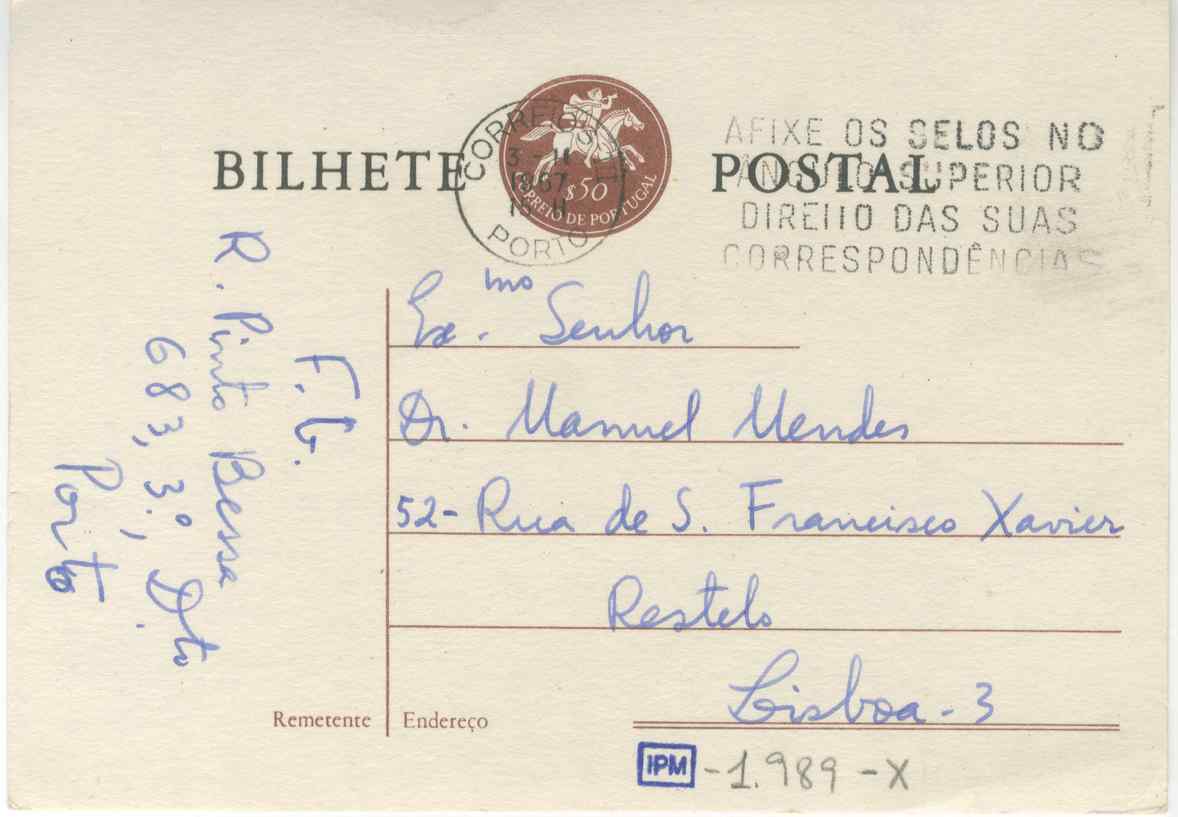 BILHETE POSTAL
CORREIO
PORTO
$50
CORREIO DE PORTUGAL
AFIXE OS SELOS NO
ANGULO SUPERIOR
DIREITO DAS SUAS
CORRESPONDÊNCIAS
Ex.mo Senhor
Dr. Manuel Mendes
52- Rua de S. Francisco Xavier
Restelo
Lisboa - 3
F. G.
R. Pinto Bessa
683, 3.º, D.to
Porto
Remetente
Endereço
IPM -1.989 -X